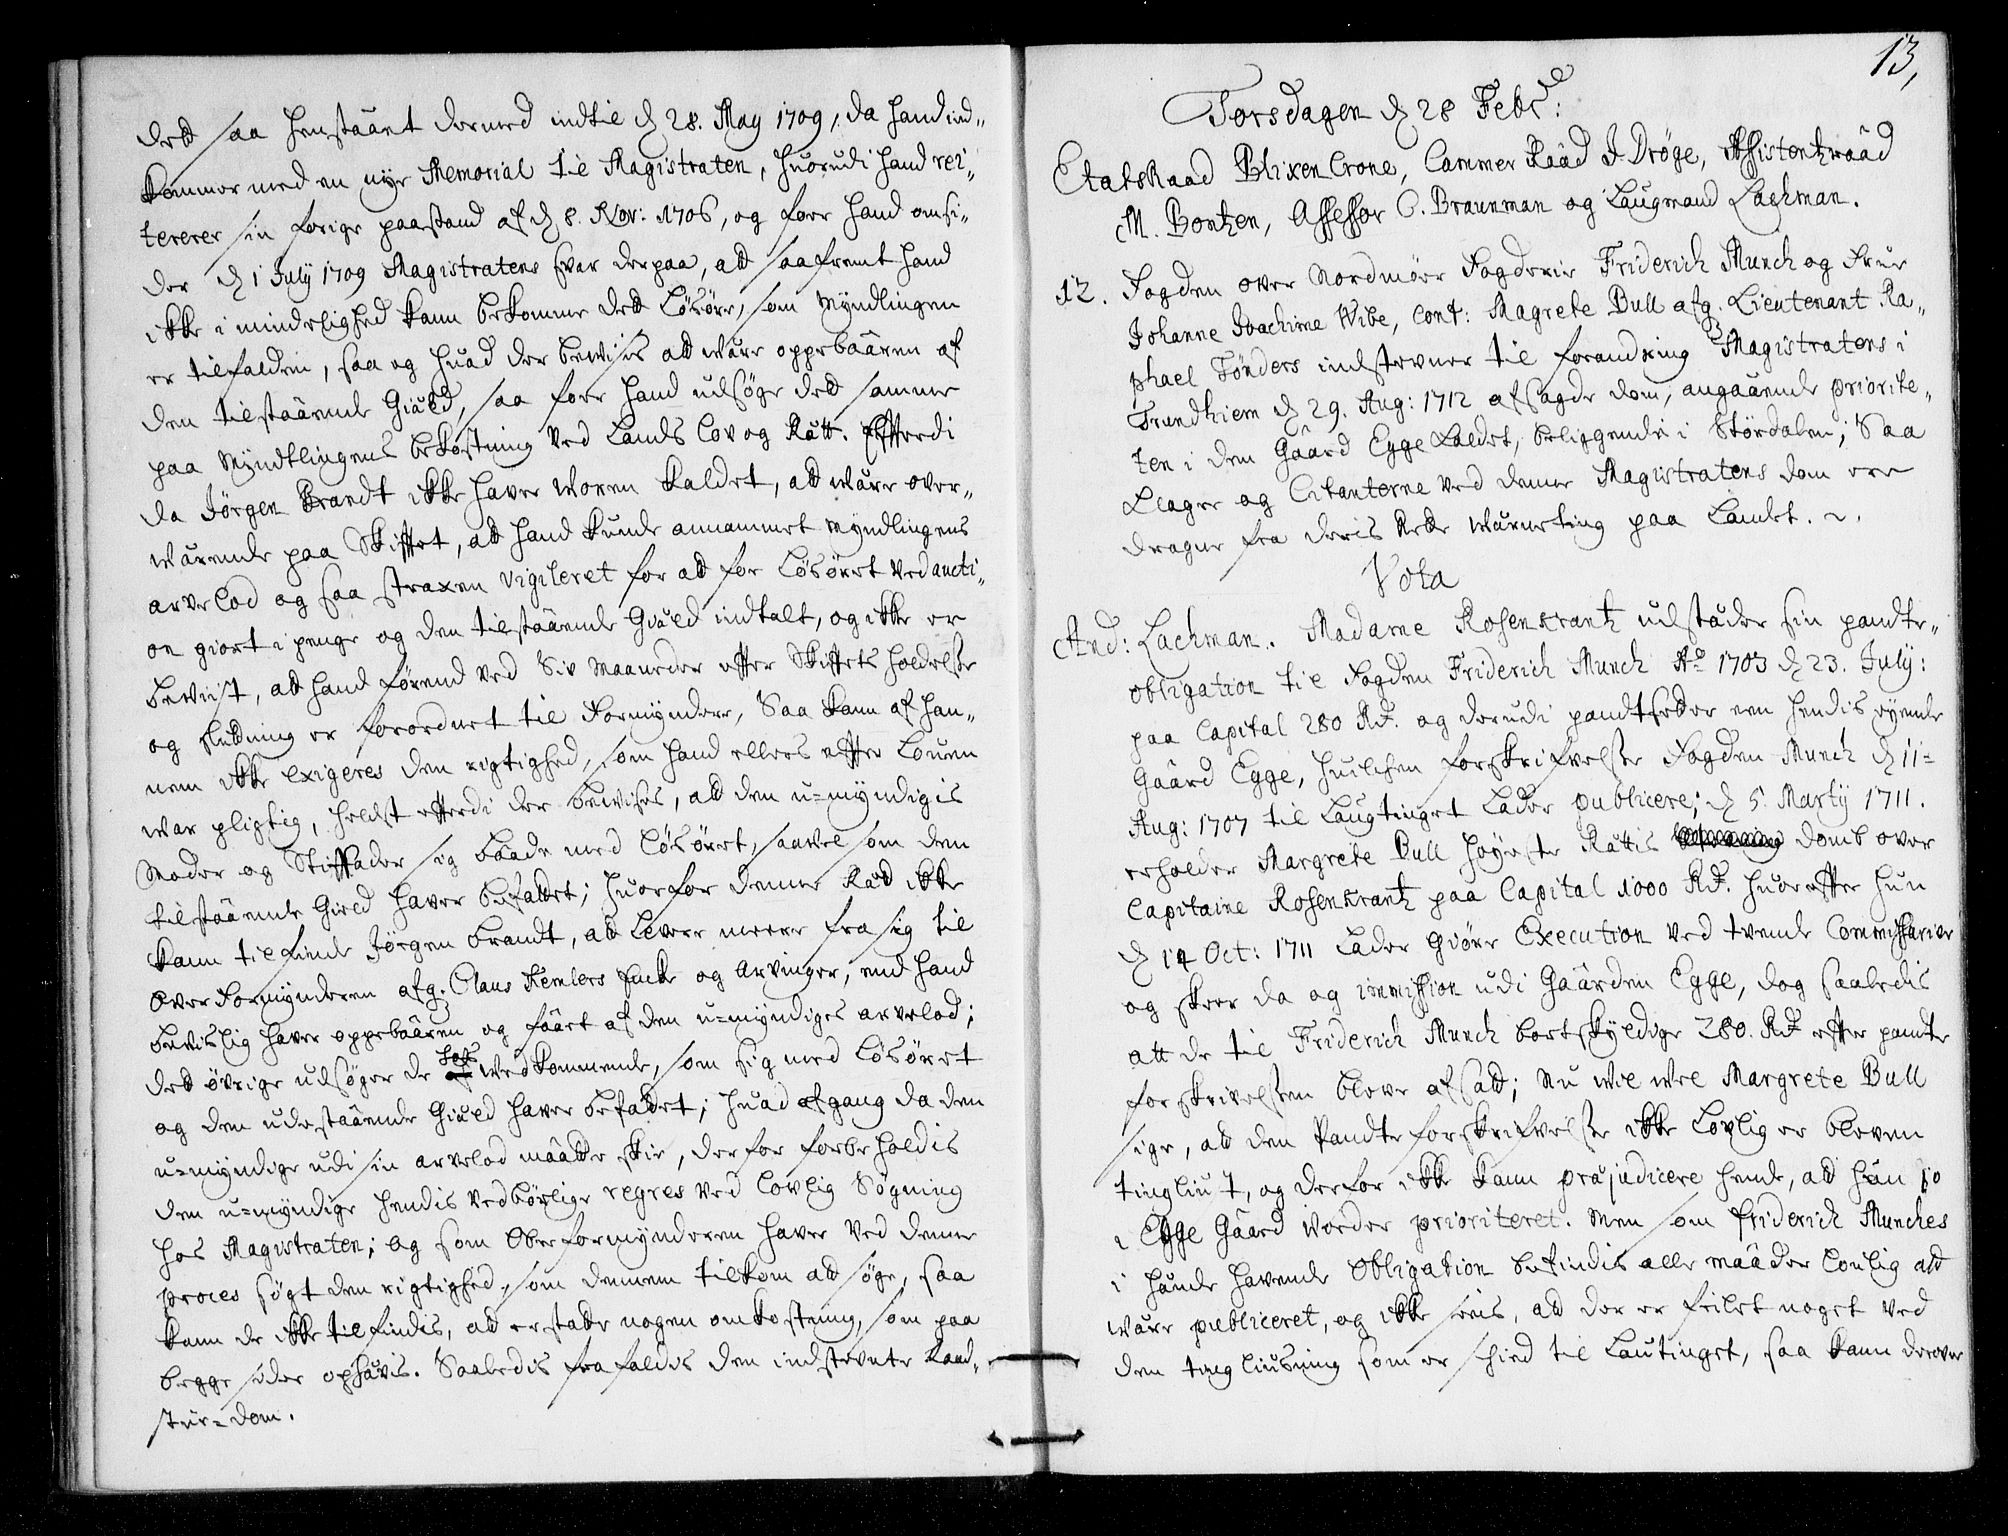 dett saa henstaaet dermed indtil d 28. May 1709, da hand ind„
kommer med en nye Memorial til Magistraten, huorudi hand rei„
tererer sin forige paastand af d 8. Nov: 1706, og faar hand omsi„
der d 1 July 1709 Magistratens svar derpaa, att saafremt hand
ikke i mindelighed kann bekomme dett Løsøre, som Myndlingen
er tilfalden, saa og huad der bevises att være oppebaaren af
den tilstaaende Giæld, saa faar hand udsøge dett samme
paa Myndtlingens bekostning ved Lands Lov og Rætt. Efterdi
da Jörgen Brandt ikke haver voren kaldet, att være over„
værende paa Skiftet, att hand kunde annammet Myndlingens
arvelod og saa straxen vigileret for att faae Løsøret ved aucti„
on giort i penge og den tilstaaende Giæld indtalt, og ikke er
beviist, att hand førend ved Siv Maaneder efter Skiftets holdelse
og slutning er forordnet til Formyndere, Saa kann af han„
nem ikke exigeres den rigtighed, som hand ellers efter Louen
var pligtig, heldst efterdi der bevises, att den u=myndigis
Moder og Stiffader sig baade med Løsøret, saavel som den
tilstaaende Gield haver befattet; huorfor denne Ræt ikke
kann tilfinde Jörgen Brandt, att Levere meere fra sig til
Over Formynderen afg. Claus Kemlers Encke og Arvinger, end hand
bevislig haver oppebaaren og faaet af den u=myndiges arvelod;
det øvrige udsøger de hos vedkommende, som sig med Løsøret
og den udestaaende Giæld haver befattet; huad afgang da den
u=myndige udi sin arvelod maatte skie, derfor forbeholdis
den u=myndige hendis vedbørlige regres ved Lovlig Søgning
hos Magistraten; og som Oberformynderen haver ved denne
proces søgt den rigtighed, som dennem tilkom att søge, saa
kann de ikke tilfindis, att erstatte nogen omkostning, som paa
begge sider ophævis. Saaledis fra faldes den indstevnte Raad„
stue=dom.

13,
Torsdagen d 28 Febr:
Etatsraad Blixencrone, Cammer Raad J Dröge, Assistentzraad
M. Bentzen, Assessor C. Braunman og Laugmand Lachman.
12. Fogden over Nordmöer Fogderie Friderich Munch og Frue
Johanne Joachime Wibe, Cont: Magrete Bull afg. Lieutenant Ra„
phael Tönders indstevner til forandring Magistratens i
Trundhiem d 29. Aug: 1712 afsagde dom, angaaende priorite„
ten i den Gaard Egge kaldet, beliggende i Størdalen; Saa
klager og Citanterne ved denne Magistratens dom ere
dragne fra deris Rette Værneting paa Landet.
Vota
And: Lachman. Madame Rosenkrantz udstæder sin pandte„
obligation til Fogden Friderich Munch Ao 1703 d 23. July:
paa Capital 280 Rd. og derudi pandtsetter een hendis ejende
Gaard Egge, huilchen forskrifvelse Fogden Munch d 11=
Aug: 1707 til Laugtinget Lader publicere; d 5. Marty 1711.
erholder Margrete Bull Høyeste Rættis domb over
Capitaine Rosenkrantz paa Capital 1000 Rd. huorefter hun
d 14 Oct: 1711 Lader Giøre Execution ved tvende Commissarier
og skeer da og immission udi Gaarden Egge, dog saaledis
att de til Friderich Munch bortskyldige 280. Rd efter pandte
forskrivelsen bleve afsatt; Nu vil vel Margrete Bull
sige, att den Pandteforskrifvelse ikke Lovlig er bleven
tingliust, og derfor ikke kann præjudicere hende, att hun jo
i Egge Gaard vorder prioriteret. Men som Friderich Munches
i hænde havende Obligation befindis alle maader Louglig att
være publiceret, og ikke sees, att der er feilet noget ved
den tingliusning som er skied til Lautinget, saa kann derover